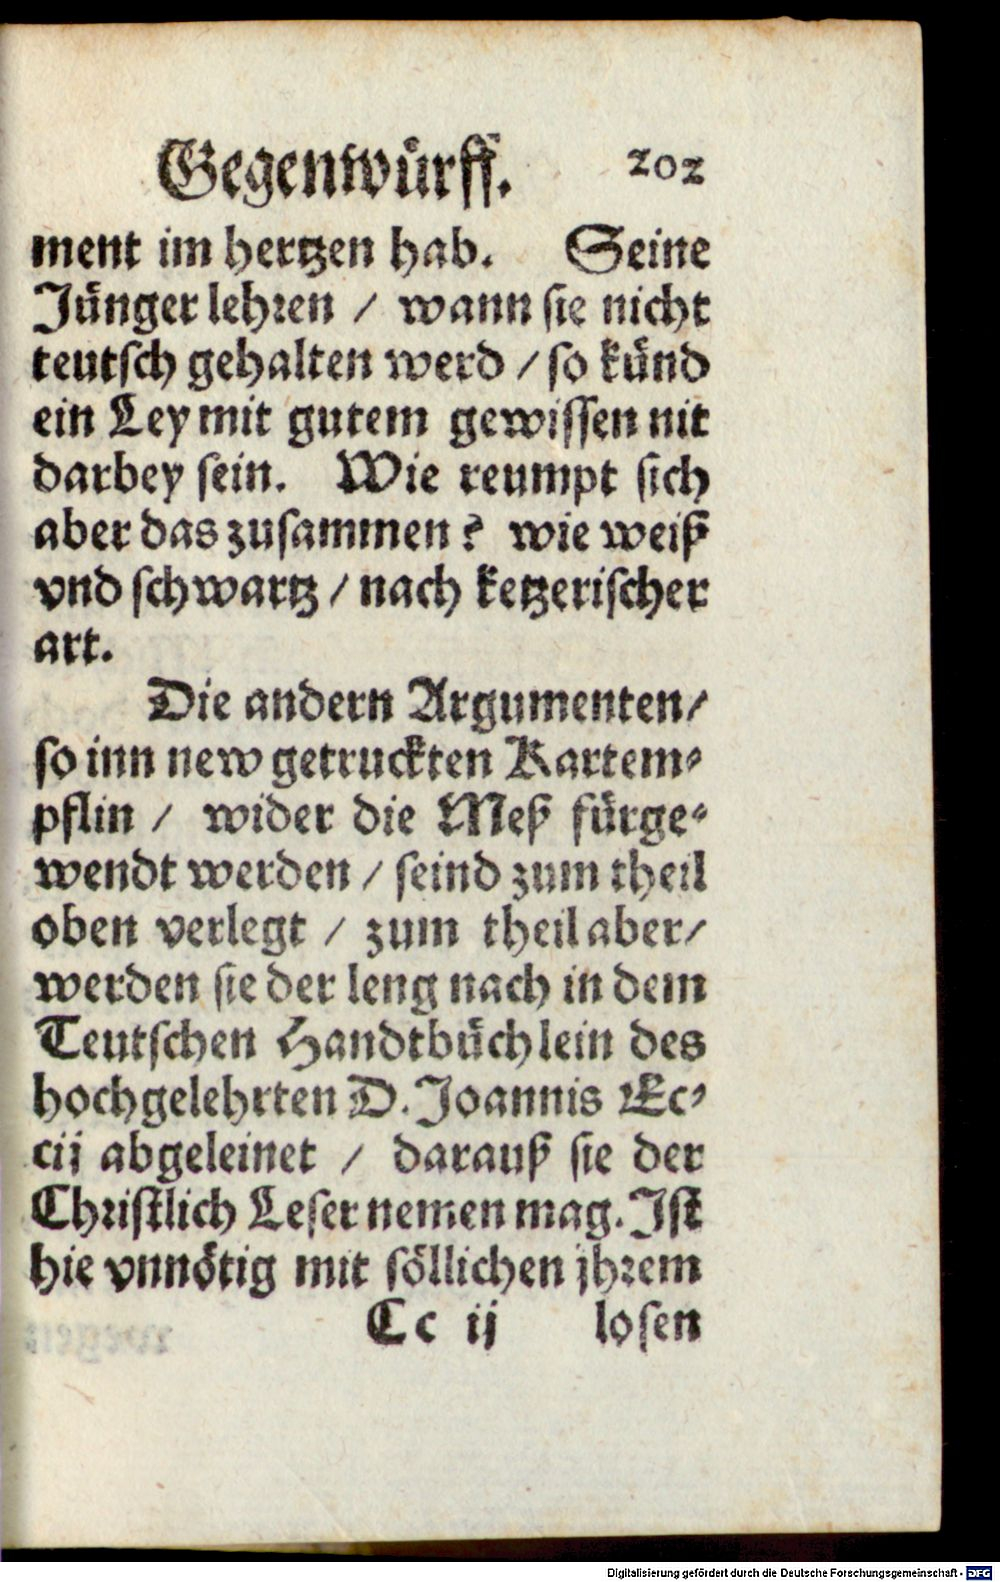 Gegenwürff. 202
ment im hertzen hab. Seine
Jünger lehren / wann sie nicht
teutsch gehalten werd / so künd
ein Ley mit gutem gewissen nit
darbey sein. Wie reumpt sich
aber das zusammen? wie weiß
vnd schwartz / nach ketzerischer
art.
Die andern Argumenten/
so inn new getruckten Kartem⸗
pflin / wider die Meß fürge⸗
wendt werden / seind zum theil
oben verlegt / zum theil aber/
werden sie der leng nach in dem
Teutschen Handtbüchlein des
hochgelehrten D. Joannis Ec⸗
cij abgeleinet / darauß sie der
Christlich Leser nemen mag. Ist
hie vnnötig mit söllichen jhrem
Cc ij losen
Digitalisierung gefördert durch die Deutsche Forschungsgemeinschaft - DFG